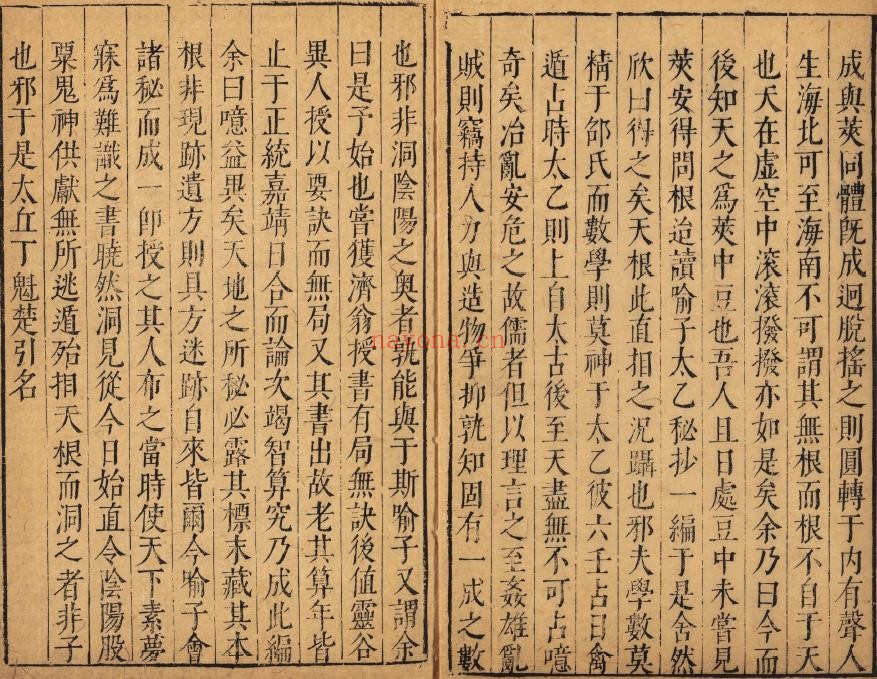 成與莢同體旣成迥脫搖之則圓轉于内有聲人
生海北可至海南不可謂其無根而根不自于天
也天在虚空中滚滚撥撥亦如是矣余乃曰今而
後知天之爲莢中豆也吾人且日處豆中未嘗見
莢安得問根迨讀喻子太乙秘抄一編于是舍然
欣曰得之矣天根此直指之況躡也邪夫學數莫
精于邵氏而數學則莫神于太乙彼六壬占日禽
遁占時太乙則上自太古後至天盡無不可占噫
奇矣治亂安危之故儒者但以理言之至姦雄亂
賊則竊持人力與造物爭抑孰知固有一成之數
也邪非洞陰陽之奥者孰能與于斯喻子又謂余
曰是予始也嘗獲濟翁授書有局無訣後值靈谷
異人授以要訣而無局又其書出故老其算年皆
止于正統嘉靖日合而論次竭智算究乃成此編
余曰噫益異矣天地之所秘必露其標末藏其本
根非現跡遺方則具方迷跡自來皆爾今喻子會
諸秘而成一師授之其人布之當時使天下素夢
寐爲難識之書曉然洞見從今日始直令陰陽股
栗鬼神供獻無所逃遁殆指天根而洞之者非子
也邪于是太丘丁魁楚引名
nayona.cn